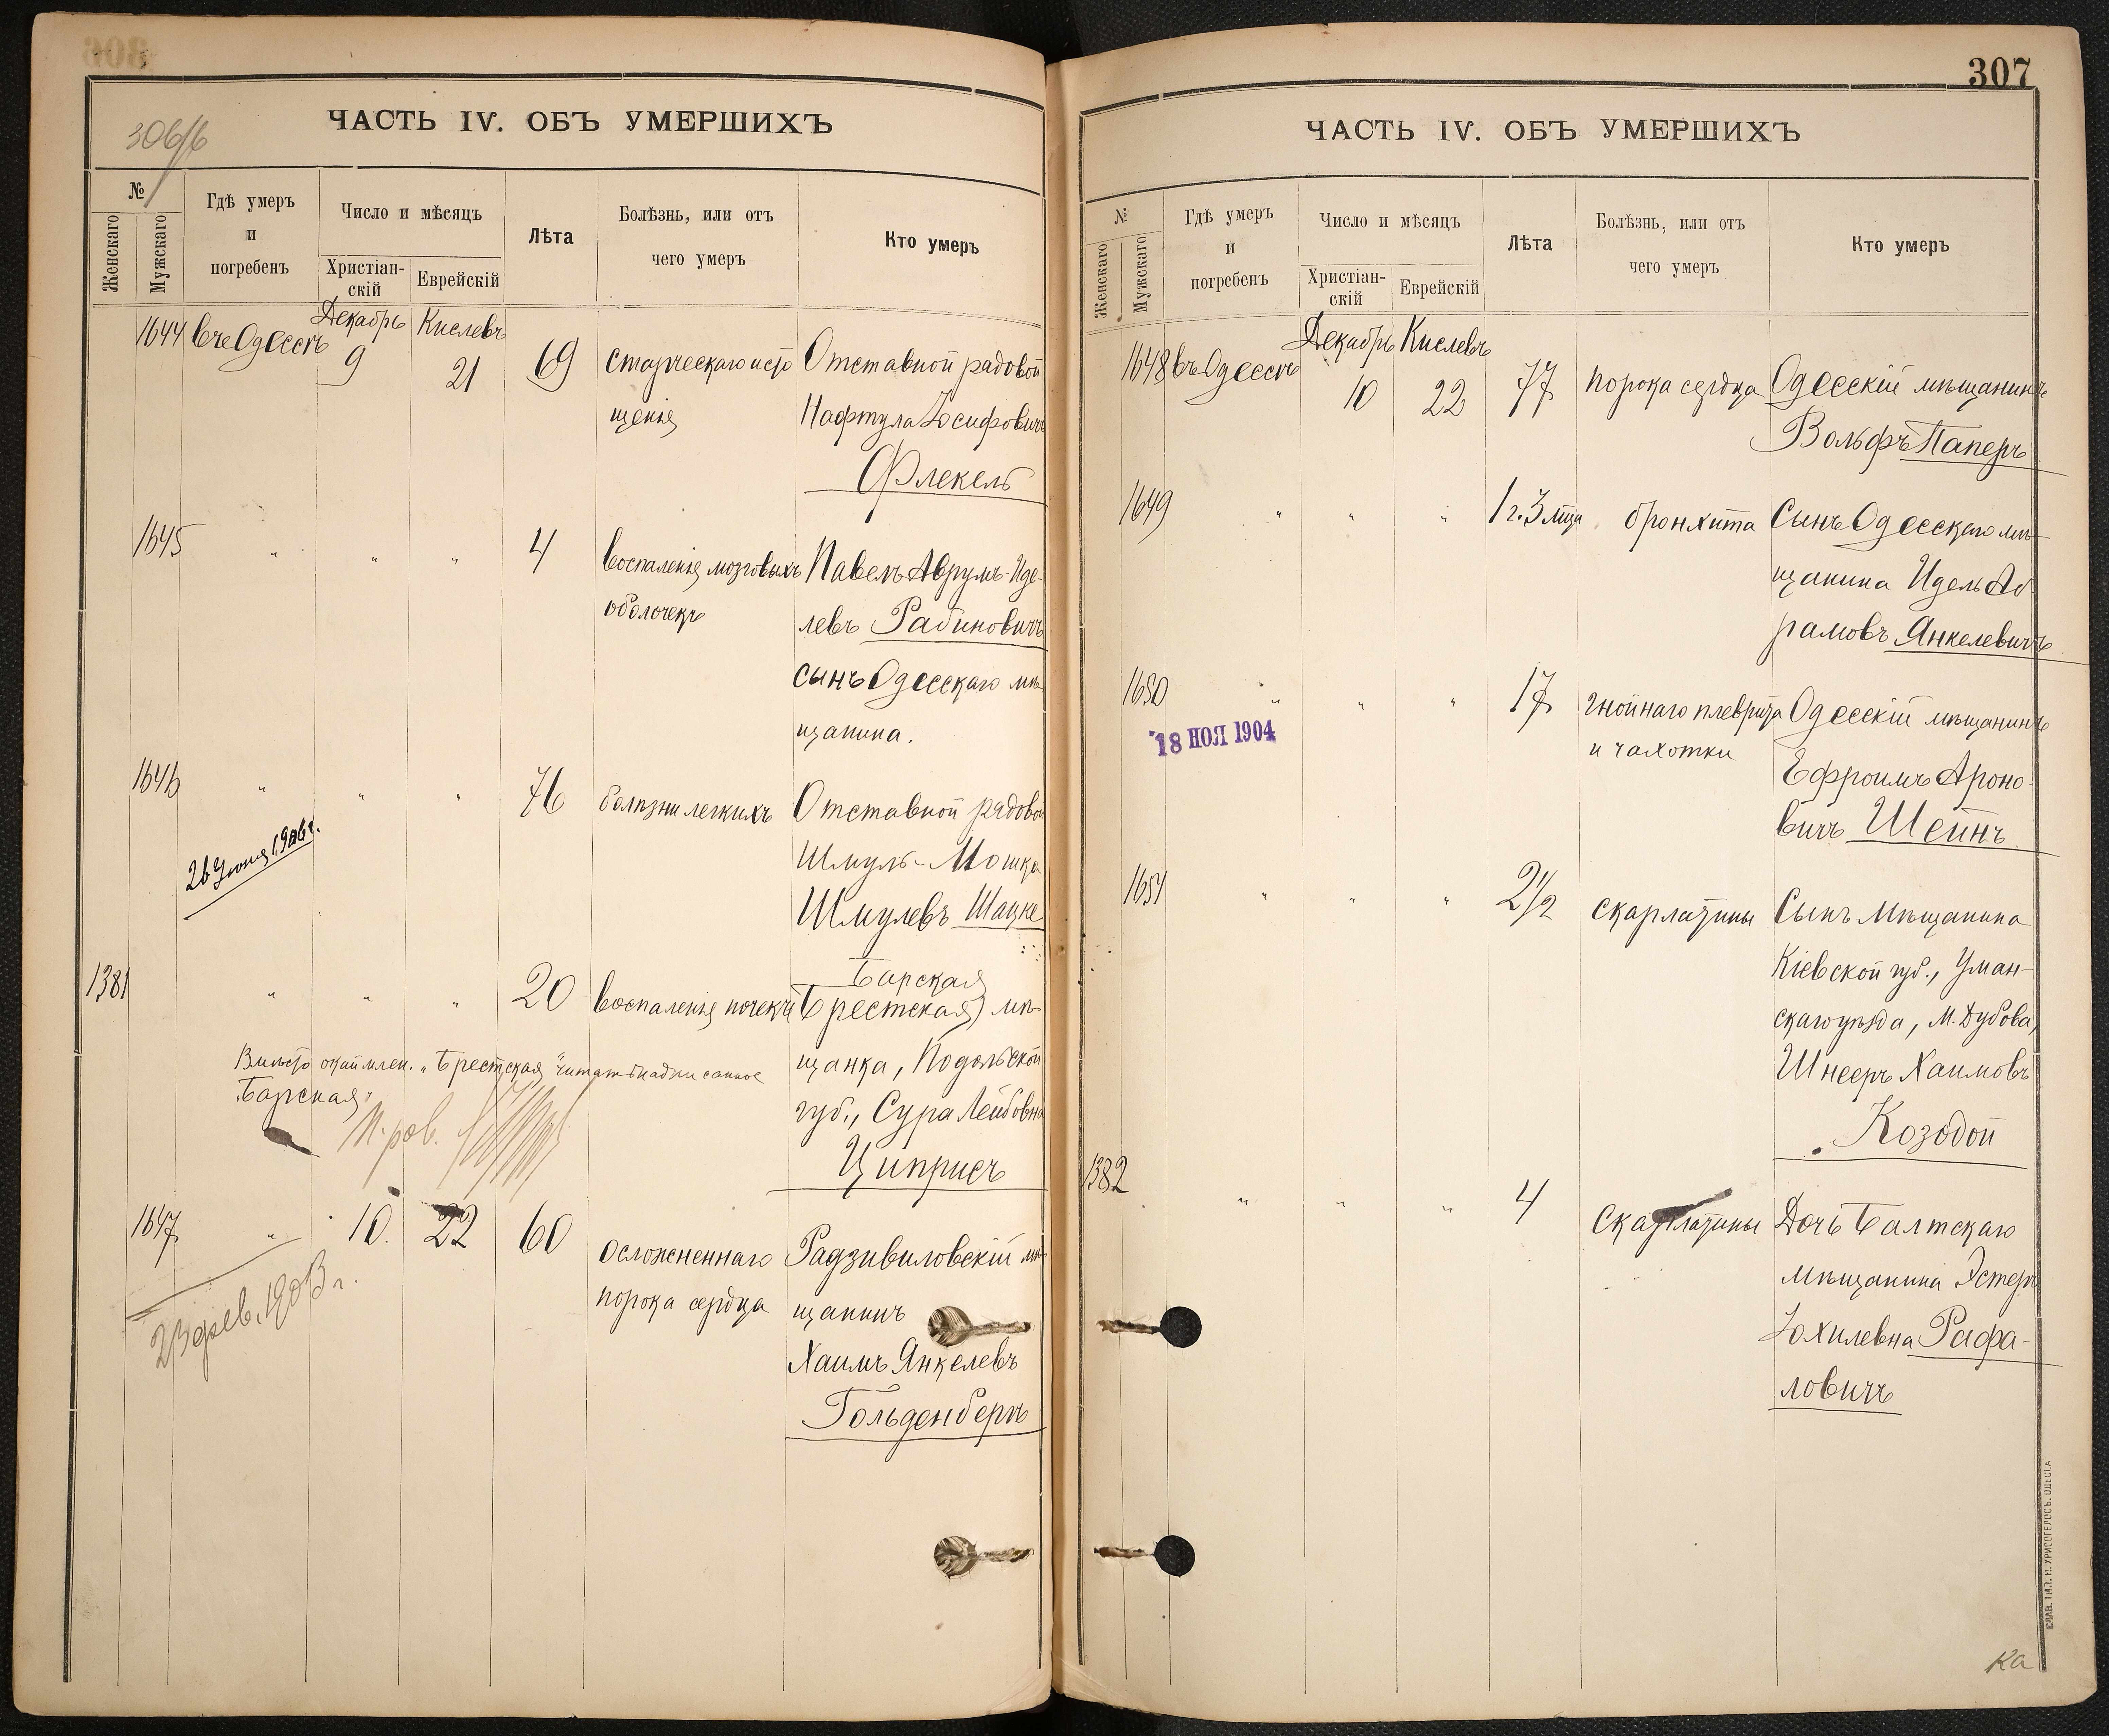 307
ЧАСТЬ IV. ОБЪ УМЕРШИХЪ
306/б
№
Женскаго
Мужскаго
Гдѣ умеръ
и
погребенъ
Число и мѣсяцъ
Христіан-
скій
Еврейскій
Лѣта
Болѣзнь, или отъ
чего умеръ
Кто умеръ
Декабрь Кислевъ
1644 въ Одессѣ 9 21 69 старческаго исто Отставной рядовой
щенія Нафтула Іосифовичъ
Флекель
1645 " " " 4 воспаленія мозговыхъ Павелъ Аврумъ-Иде-
оболочекъ левъ Рабиновичъ
сынъ Одесскаго мѣ-
щанина.
1646 " " " 76 болѣзни легкихъ Отставной рядовой
Шмуль-Мошка
26 Іюня 1906 г.
Шмулевъ Шацке
Барская
1381 " " " 20 воспаленія почекъ Брестская мѣ-
щанка, Подольской
Вмѣсто окаймлен. „Брестская" читать надписанное
„Барская"
губ., Сура Лейбовна
Циприсъ
1647 " 10. 22 60 осложненнаго Радзивиловскій мѣ-
порока сердца щанинъ
23 фев. 1903 г.
Хаимъ Янкелевъ
Гольденбергъ
ЧАСТЬ IV. ОБЪ УМЕРШИХЪ
№
Женскаго
Мужскаго
Гдѣ умеръ
и
погребенъ
Число и мѣсяцъ
Христіан-
скій
Еврейскій
Лѣта
Болѣзнь, или отъ
чего умеръ
Кто умеръ
Декабрь Кислевъ
1648 въ Одессѣ 10 22 77 порока сердца Одесскій мѣщанинъ
Вольфъ Паперъ
1649 " " " 1 г. 3 мца бронхита Сынъ Одесскаго мѣ-
щанина Идель Аб-
рамовъ Янкелевичъ
1650 " " " 17 гнойнаго плеврита Одесскій мѣщанинъ
и чахотки
18 НОЯ 1904
Ефроимъ Ароно-
вичъ Шейнъ
1651 " " " 2 1/2 скарлатины Сынъ мѣщанина
Кіевской губ., Уман-
скаго уѣзда, М. Дубова,
Шнееръ Хаимовъ
Козодой
1382 " " " 4 Скарлатины Дочь Балтскаго
мѣщанина Эстеръ
Іохилевна Рафа-
ловичъ